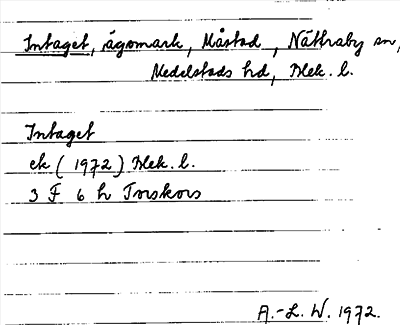 Intaget, ägomark, Måstad, Nättraby sn,
Medelstads hd, Blek. l.
Intaget
ek (1972) Blek. l.
3 F 6 h Torskors
A.-L. W. 1972.